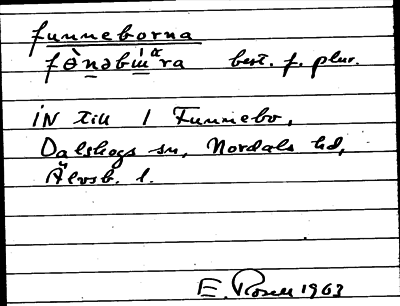 funneborna
fɵ̀nəbɯra best. f. plur.
IN till 1 Funnebo,
Dalskogs sn, Nordals hd,
Älvsb. l.
E. Rosell 1963